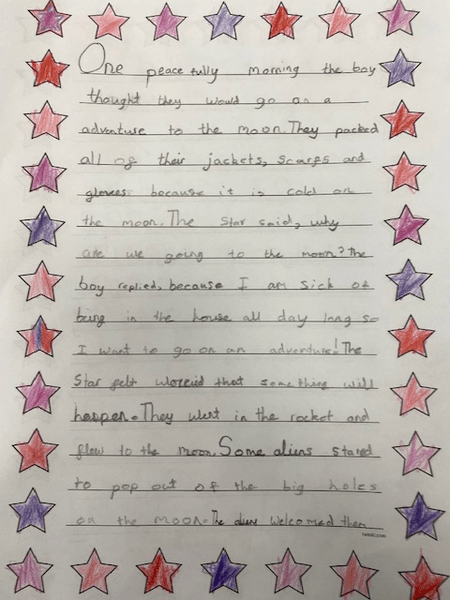 One peacefully morning the boy
thought they would go on a
adventure to the moon. They packed
all of their jackets, scarfs and
gloves because it is cold on
the moon. The star said, why
are we going to the moon? The
boy replied, because I am sick of
being in the house all day long so
I want to go on an adventure! The
star felt worreid that something will
happen. They went in the rocket and
flew to the moon. Some aliens stared
to pop out of the big holes
on the moon. The aliens welcomed them
twinkl.com